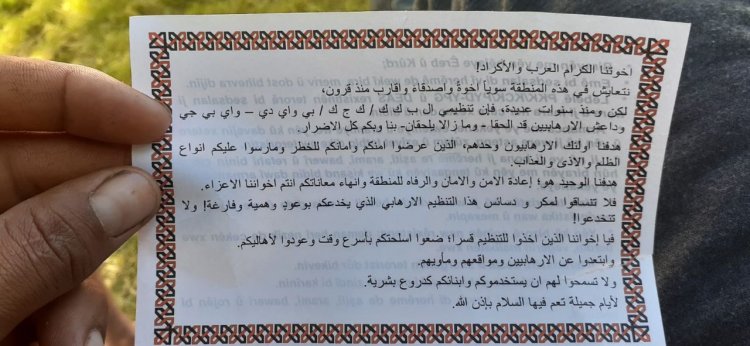 اخوتنا الكرام العرب والأكراد!
نتعايش في هذه المنطقة سوياً أخوةً وأصدقاءً وأقارب منذ قرون،
لكن ومنذ سنوات عديدة، فإن تنظيمي ال ب ك ك / ك ج ك / بي واي دي – واي بي جي
وداعش الارهابيين قد الحقا - وما زالا يلحقان- بنا وبكم كل الاضرار.
هدفنا اولئك الارهابيون وحدهم، الذين عرضوا امنكم وامانكم للخطر ومارسوا عليكم انواع
الظلم والأذى والعذاب.
هدفنا الوحيد هو؛ إعادة الامن والامان والرفاه للمنطقة وانهاء معاناتكم انتم اخواننا الاعزاء.
فلا تنساقوا لمكر و دسائس هذا التنظيم الارهابي الذي يخدعكم بوعودٍ وهمية وفارغة! ولا
تنخدعوا!
فيا إخواننا الذين اخذوا للتنظيم قسراً؛ ضعوا اسلحتكم بأسرع وقت وعودوا لأهاليكم.
وابتعدوا عن الارهابيين ومواقعهم ومأويهم.
ولا تسمحوا لهم ان يستخدموكم وابنائكم كدروع بشرية.
لأيام جميلة تعم فيها السلام بإذن الله.